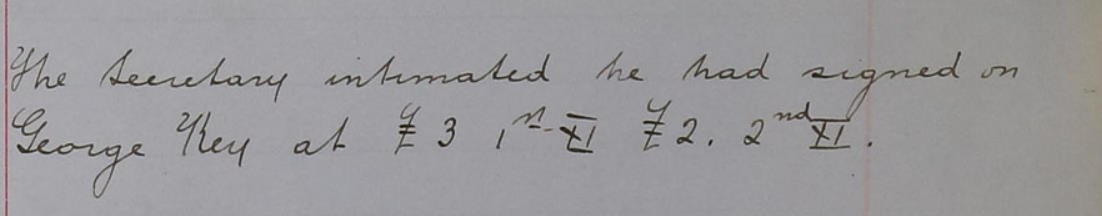 The Secretary intimated he had signed on
George Key at £3 1st XI £2. 2nd XI.